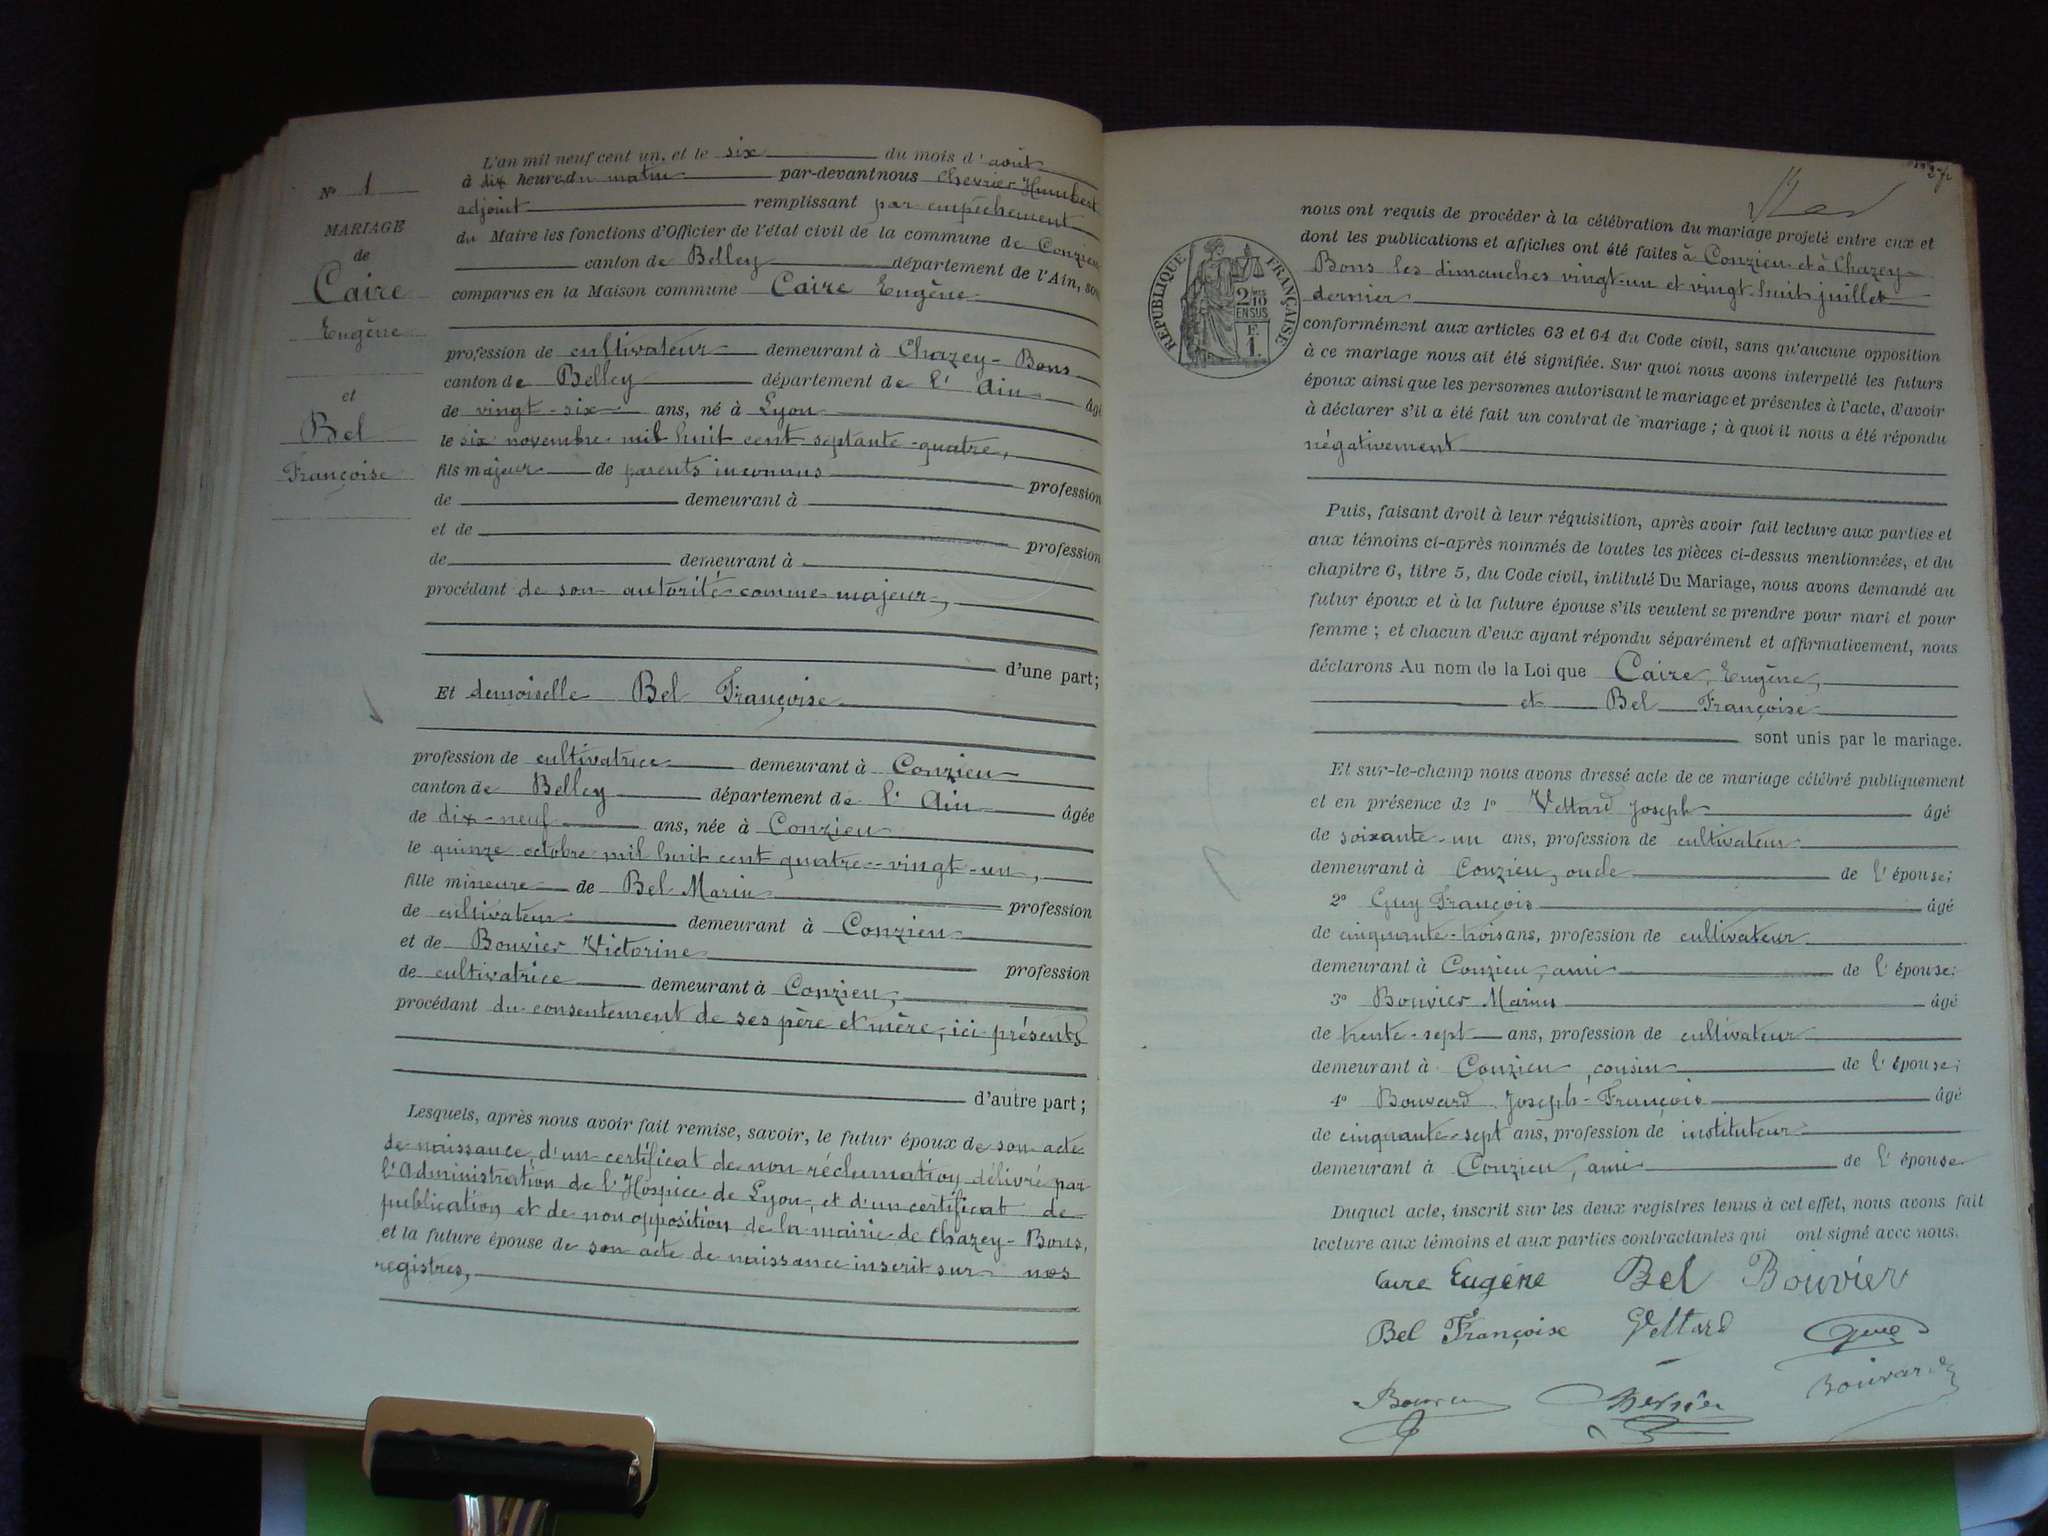 L'an mil neuf cent un, et le six du mois d'août
à dix heures du matin par-devant nous Chevrier Humbert
adjoint remplissant par empêchement
du Maire les fonctions d'Officier de l'état civil de la commune de Conzieu
canton de Belley département de l'Ain, son
comparus en la Maison commune Caire Eugène
N° 1
MARIAGE
de
Caire
Eugène
et
Bel
Françoise
profession de cultivateur demeurant à Chazey-Bons
canton de Belley département de l'Ain âgé
de vingt-six ans, né à Lyon
le six novembre mil huit cent septante-quatre,
fils majeur de parents inconnus profession
de demeurant à
et de profession
de demeurant à
procédant de son autorité comme majeur,
d'une part;
Et demoiselle Bel Françoise
profession de cultivatrice demeurant à Conzieu
canton de Belley département de l'Ain âgée
de dix-neuf ans, née à Conzieu
le quinze octobre mil huit cent quatre-vingt-un,
fille mineure de Bel Marin profession
de cultivateur demeurant à Conzieu
et de Bouvier Victorine profession
de cultivatrice demeurant à Conzieu,
procédant du consentement de ses père et mère, ici présents
d'autre part;
Lesquels, après nous avoir fait remise, savoir, le futur époux de son acte
de naissance, d'un certificat de non réclamation délivré par
l'Administration de l'Hospice de Lyon, et d'un certificat de
publication et de non opposition de la mairie de Chazey-Bons,
et la future épouse de son acte de naissance inscrit sur nos
registres,
RÉPUBLIQUE FRANÇAISE
2/10
EN SUS
F.
1.
nous ont requis de procéder à la célébration du mariage projeté entre eux et
dont les publications et affiches ont été faites à Conzieu et à Chazey-
Bons les dimanches vingt-un et vingt-huit juillet
dernier
conformément aux articles 63 et 64 du Code civil, sans qu'aucune opposition
à ce mariage nous ait été signifiée. Sur quoi nous avons interpellé les futurs
époux ainsi que les personnes autorisant le mariage et présentes à l'acte, d'avoir
à déclarer s'il a été fait un contrat de mariage; à quoi il nous a été répondu
négativement
Puis, faisant droit à leur réquisition, après avoir fait lecture aux parties et
aux témoins ci-après nommés de toutes les pièces ci-dessus mentionnées, et du
chapitre 6, titre 5, du Code civil, intitulé Du Mariage, nous avons demandé au
futur époux et à la future épouse s'ils veulent se prendre pour mari et pour
femme; et chacun d'eux ayant répondu séparément et affirmativement, nous
déclarons Au nom de la Loi que Caire, Eugène,
et Bel Françoise
sont unis par le mariage.
Et sur-le-champ nous avons dressé acte de ce mariage célébré publiquement
et en présence de 1° Vettard Joseph âgé
de soixante-un ans, profession de cultivateur
demeurant à Conzieu, oncle de l'épouse;
2° Guy François âgé
de cinquante-trois ans, profession de cultivateur
demeurant à Conzieu, ami de l'épouse;
3° Bouvier Marius âgé
de trente-sept ans, profession de cultivateur
demeurant à Conzieu, cousin de l'épouse;
4° Bouvard Joseph-François âgé
de cinquante-sept ans, profession de instituteur
demeurant à Conzieu, ami de l'épouse
Duquel acte, inscrit sur les deux registres tenus à cet effet, nous avons fait
lecture aux témoins et aux parties contractantes qui ont signé avec nous.
Caire Eugène Bel Bouvier
Bel Françoise Vettard
Bouvard